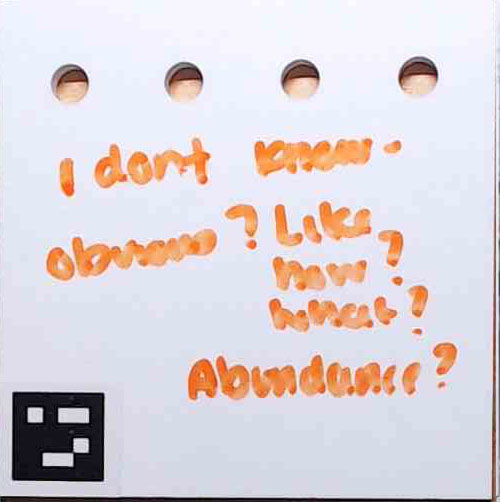 I dont know -
obvious? Like
how?
what?
Abundance?